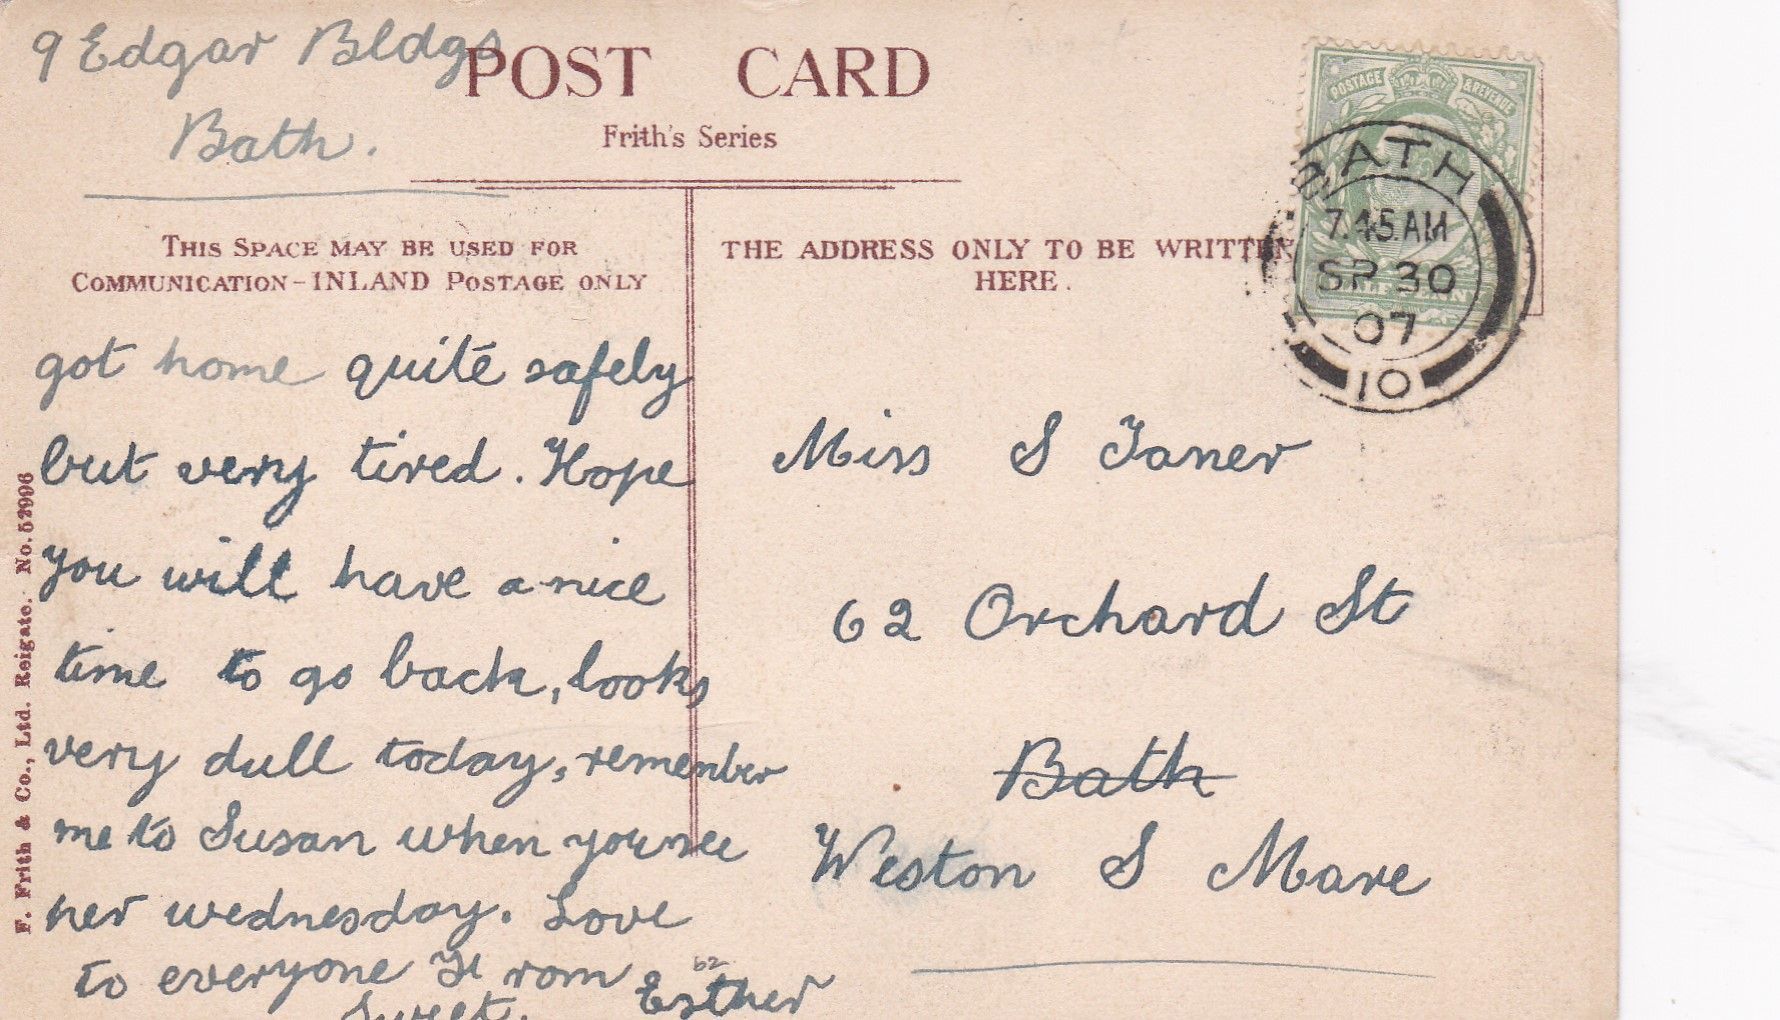 9 Edgar Bldgs
Bath.
POST CARD
Frith's Series
THIS SPACE MAY BE USED FOR
COMMUNICATION-INLAND POSTAGE ONLY
THE ADDRESS ONLY TO BE WRITTEN
HERE.
POSTAGE & REVENUE
HALFPENNY
BATH
7.45AM
SP 30
07
10
got home quite safely
but very tired. Hope
you will have a nice
time to go back, looks
very dull today, remember
me to Susan when you see
her wednesday. Love
to everyone From Esther
Sweet.
62
Miss S Janer
62 Orchard St
Bath
Weston S Mare
F. Frith & Co., Ltd. Reigate. No. 52996